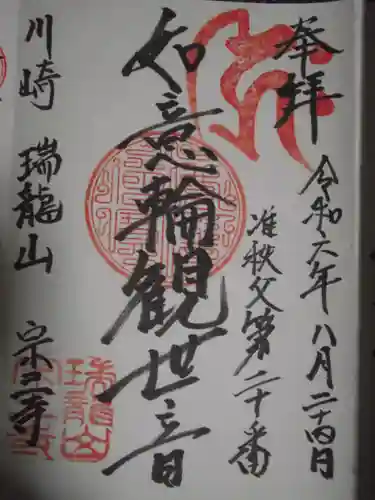 奉拝
令和六年八月二十四日
准秩父第二十番
如意輪観世音
川崎 瑞龍山 宗三寺